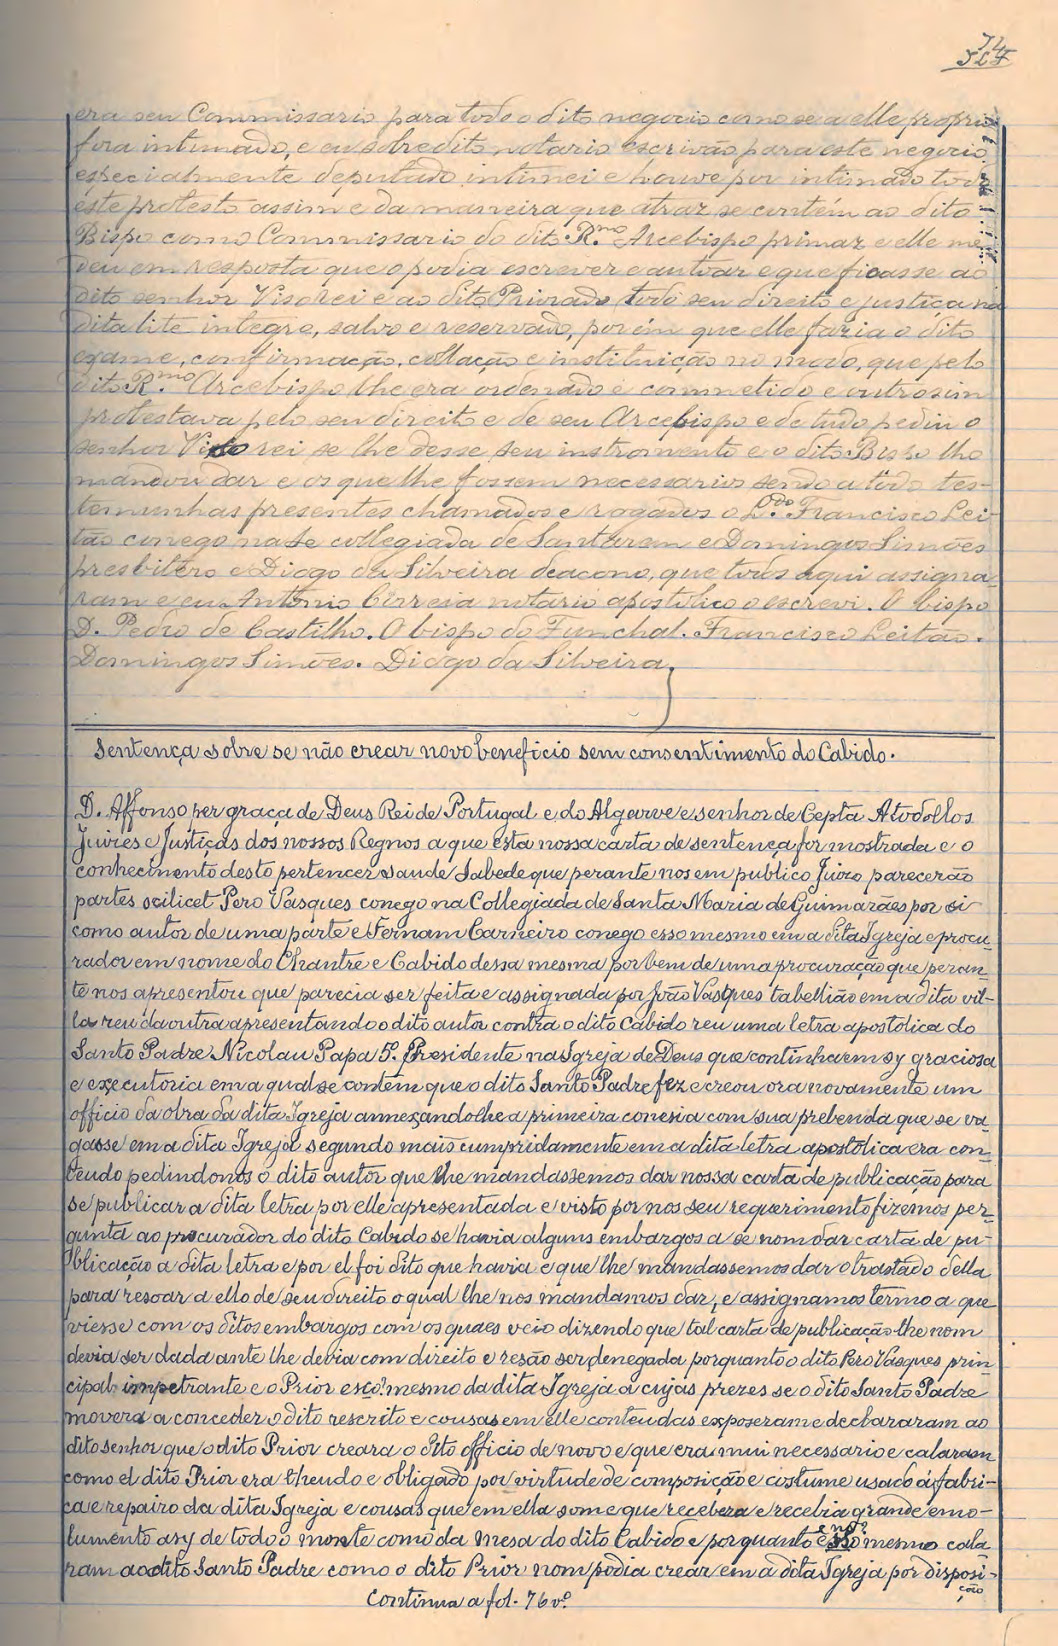 74
era seu Commissario para todo o dito negocio como se a elle proprio
fora intimado, e eu sobredito notario escrivão para este negocio
especialmente deputado intimei e houve por intimado todo
este protesto assim e da maneira que atraz se contém ao dito
Bispo como Commissario do dito R.mo Arcebispo primaz e elle me
deu em resposta que o podia escrever e autoar e que ficasse ao
dito senhor Visorei e ao dito Priorado todo seu direito e justiça na
dita lite integro, salvo e reservado, porém que elle fazia o dito
exame, confirmação, collação e instituição no modo, que pelo
dito R.mo Arcebispo lhe era ordenado e commetido e outrosim
protestava pelo seu direito e de seu Arcebispo e de tudo pediu o
senhor Viso rei se lhe desse seu instromento e o dito Bispo lho
mandou dar e os que lhe fossem necessarios sendo a tudo tes-
temunhas presentes chamados e rogados o L.do Francisco Lei-
tão conego na Se collegiada de Santarem e Domingos Simões
presbitero e Diogo da Silveira deacono, que todos aqui assigna-
ram e eu Antonio Correia notario apostolico o escrevi. O bispo
D. Pedro de Castilho. O bispo do Funchal. Francisco Leitão.
Domingos Simões. Diogo da Silveira,
Sentença sobre se não crear novo beneficio sem consentimento do Cabido.
D. Affonso per graça de Deus Rei de Portugal e do Algarve e senhor de Cepta A todollos
Juizes e Justiças dos nossos Regnos a que esta nossa carta de sentença for mostrada e o
conhecimento desto pertencer saude Sabede que perante nos em publico Juizo parecerão
partes scilicet Pero Vasques conego na Collegiada de Santa Maria de Guimarães por si
como autor de uma parte e Fernam Carneiro conego esso mesmo em a dita Igreja e procu-
rador em nome do Chantre e Cabido dessa mesma por bem de uma procuração que peran-
te nos apresentou que parecia ser feita e assignada por João Vasques tabellião em a dita vil-
la reu da outra apresentando o dito autor contra o dito Cabido reu uma letra apostolica do
Santo Padre Nicolau Papa 5.º Presidente na Igreja de Deus que continha em sy graciosa
e executoria em a qual se contém que o dito Santo Padre fez e creou ora novamente um
officio da obra da dita Igreja annexando lhe a primeira conesia com sua prebenda que se va-
gasse em a dita Igreja segundo mais cumpridamente em a dita letra apostolica era con-
teudo pedindo nos o dito autor que lhe mandassemos dar nossa carta de publicação para
se publicar a dita letra por elle apresentada e visto por nos seu requerimento fizemos per-
gunta ao procurador do dito Cabido se havia alguns embargos a se nom dar carta de pu-
blicação a dita letra e por el foi dito que havia e que lhe mandassemos dar o trastado della
para resoar a ello de seu direito o qual lhe nos mandamos dar, e assignamos termo a que
viesse com os ditos embargos com os quaes veio dizendo que tal carta de publicação lhe nom
devia ser dada ante lhe devia com direito e resão ser denegada porquanto o dito Pero Vasques prin-
cipal impetrante e o Prior esso mesmo da dita Igreja a cujas prezes se o dito Santo Padre
movera a conceder o dito rescrito e cousas em elle conteudas exposeram e declararam ao
dito senhor que o dito Prior creara o dito officio de novo e que era mui necessario e calaram
como el dito Prior era theudo e obligado por virtude de composição e costume usado á fabri-
ca e repairo da dita Igreja e cousas que em ella some que recebera e recebia grande emo-
lumento asy de todo o monte como da mesa do dito Cabido e porquanto mesmo cala-
ram ao dito Santo Padre como o dito Prior nom podia crear em a dita Igreja por disposi-
ção
Continua a fol. 76 vº